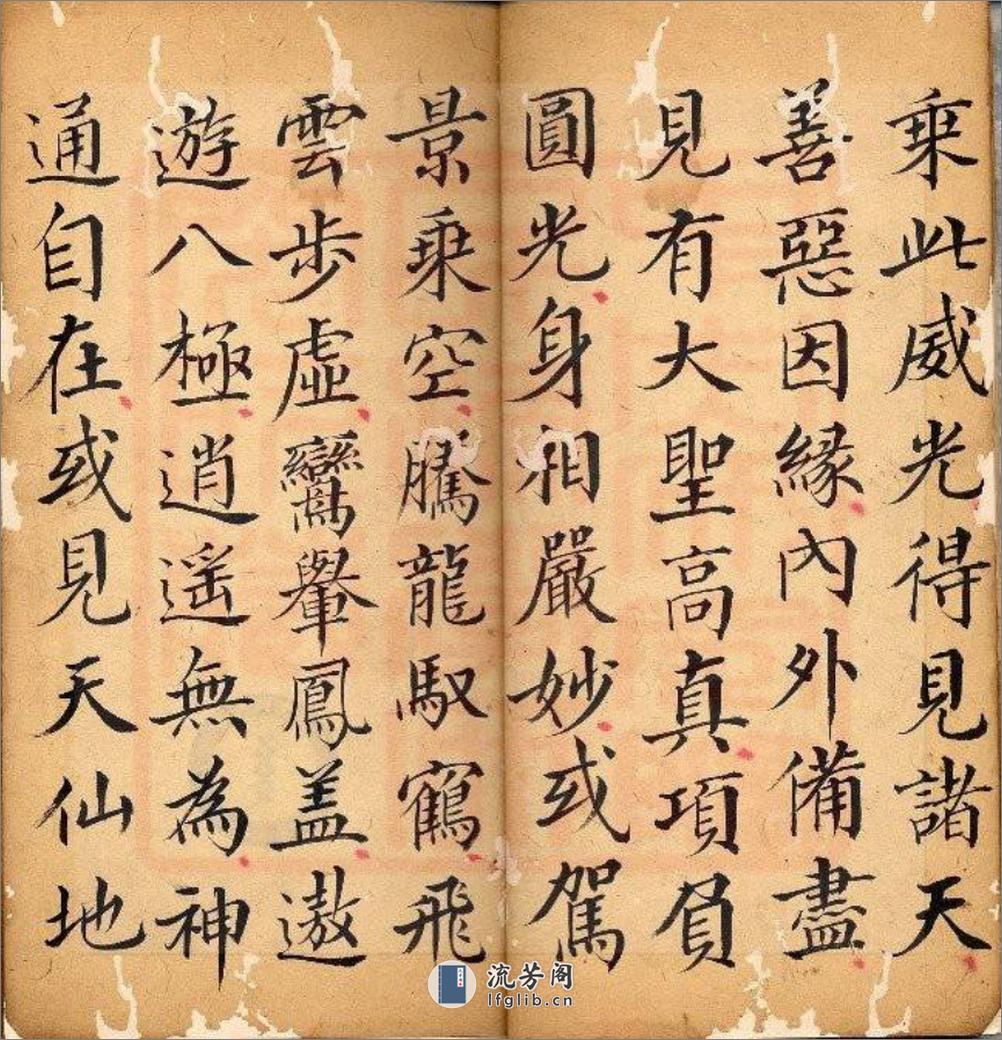 乗此威光得見諸天
善惡因縁內外備盡
見有大聖高真項負
圓光身相嚴妙或駕
景乗空騰龍馭鶴飛
雲步虛鸞轝鳳盖遨
遊八極逍遥無為神
通自在或見天仙地
流芳阁
lfglib.cn